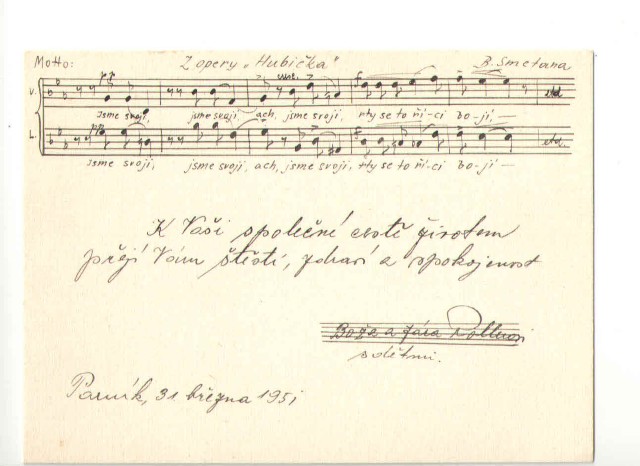 Motto: Z opery „Hubička" B. Smetana
V. jsme svoji, jsme svoji, ach, jsme svoji, rty se to ří-ci bo-jí, — etd
L. jsme svoji, jsme svoji, ach, jsme svoji, rty se to ří-ci bo-jí — etd.
K Vaší společné cestě životem
přejí Vám štěstí, zdraví a spokojenost
Boža a Jára
s dětmi.
Parník, 31 března 1951